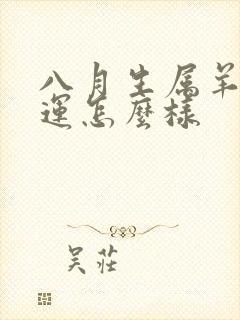 八月生属羊
運怎麽樣
吴莊